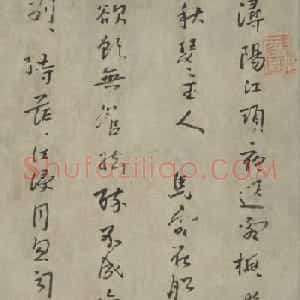 潯陽江頭夜送客楓
秋瑟〻主人馬客在船
欲飲無管絃醉不成
別〻時茫〻江浸月忽聞
Shufaziliao.com